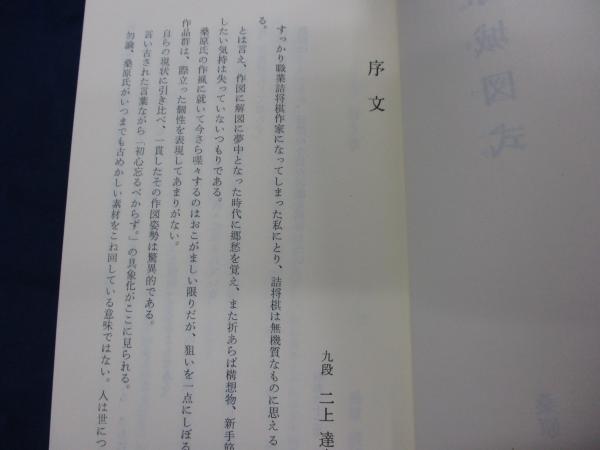 序文
九段 二上 達
すっかり職業詰将棋作家になってしまった私にとり、詰将棋は無機質なものに思える
る。
とは言え、作図に解図に夢中となった時代に郷愁を覚え、また折あらば構想物、新手筋
したい気持は失っていないつもりである。
桑原氏の作風に就いて今さら喋々するのはおこがましい限りだが、狙いを一点にしぼる
作品群は、際立った個性を表現してあまりがない。
自らの現状に引き比べ、一貫したその作図姿勢は驚異的である。
言い古された言葉ながら「初心忘るべからず。」の具象化がここに見られる。
勿論、桑原氏がいつまでも古めかしい素材をこね回している意味ではない。人は世につ
城図式